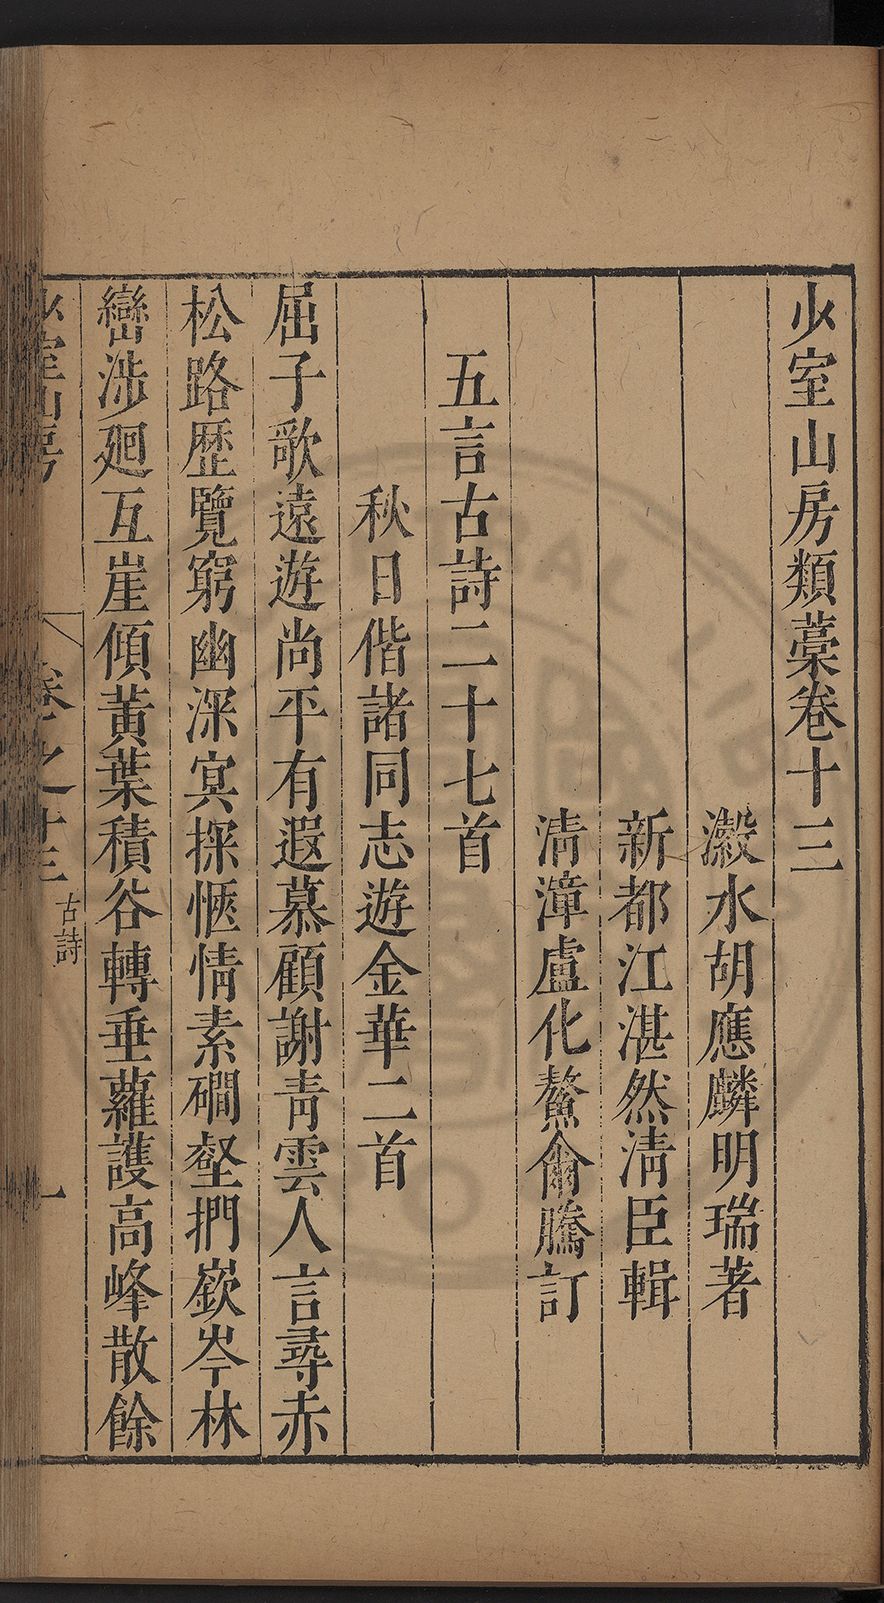 少室山房類藁卷十三
瀫水胡應麟明瑞著
新都江湛然清臣輯
清漳盧化鰲侖騰訂
五言古詩二十七首
秋日偕諸同志遊金華二首
屈子歌遠遊尚平有遐慕顧謝青雲人言尋赤
松路歷覽窮幽深冥探愜情素磵壑捫嶔岑林
巒涉廻互崖傾黃葉積谷轉垂蘿護高峰散餘
少室山房
卷之十三
古詩
一